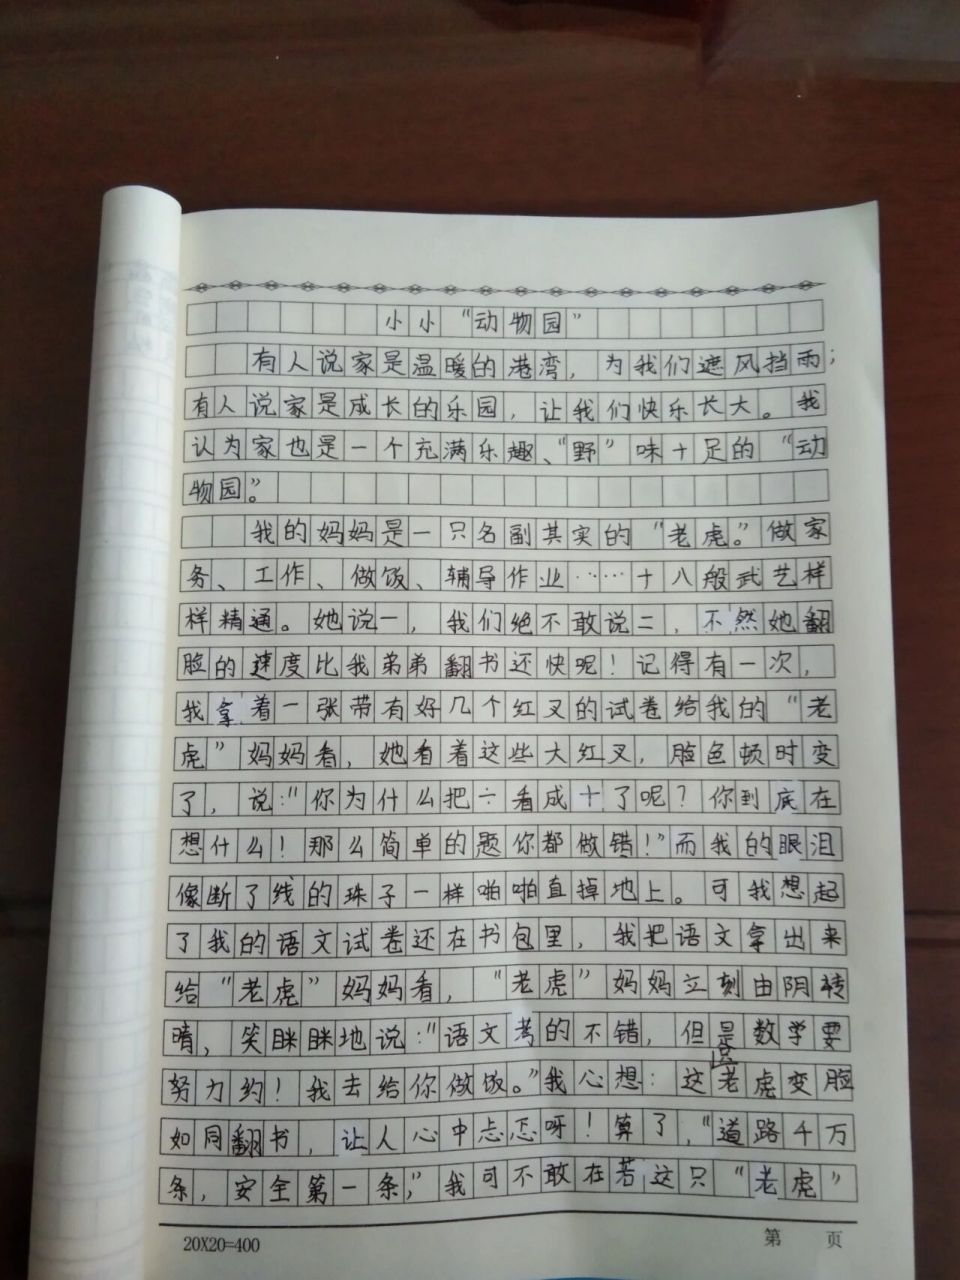 小小“动物园”
有人说家是温暖的港湾，为我们遮风挡雨；
有人说家是成长的乐园，让我们快乐长大。我
认为家也是一个充满乐趣、“野”味十足的“动
物园”。
我的妈妈是一只名副其实的“老虎”。做家
务、工作、做饭、辅导作业……十八般武艺样
样精通。她说一，我们绝不敢说二，不然她翻
脸的速度比我弟弟翻书还快呢！记得有一次，
我拿着一张带有好几个红叉的试卷给我的“老
虎”妈妈看，她看着这些大红叉，脸色顿时变
了，说：“你为什么把÷看成十了呢？你到底在
想什么！那么简单的题你都做错！”而我的眼泪
像断了线的珠子一样啪啪直掉地上。可我想起
了我的语文试卷还在书包里，我把语文拿出来
给“老虎”妈妈看，“老虎”妈妈立刻由阴转
晴，笑眯眯地说：“语文考的不错，但是数学要
努力约！我去给你做饭。”我心想：这只老虎变脸
如同翻书，让人心中忐忑呀！算了，“道路千万
条，安全第一条，”我可不敢在若这只“老虎”
20X20=400
第 页